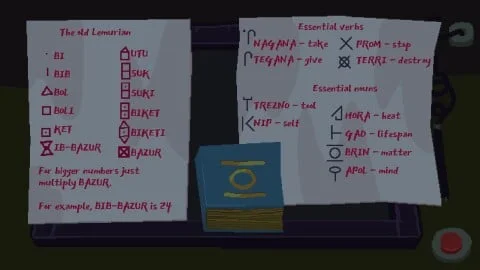 The old Lemurian
BI
BIB
BOL
BOLI
KET
IB-BAZUR
UFU
SUK
SUKI
BIKET
BIKETI
BAZUR
For bigger numbers just
multiply BAZUR.
For example, BIB-BAZUR is 24
Essential verbs
NAGANA - take
TEGANA - give
PROM - stop
TERRI - destroy
Essential
- self
HORA - heat
GAD - lifespan
BRIN - matter
APOL - mind